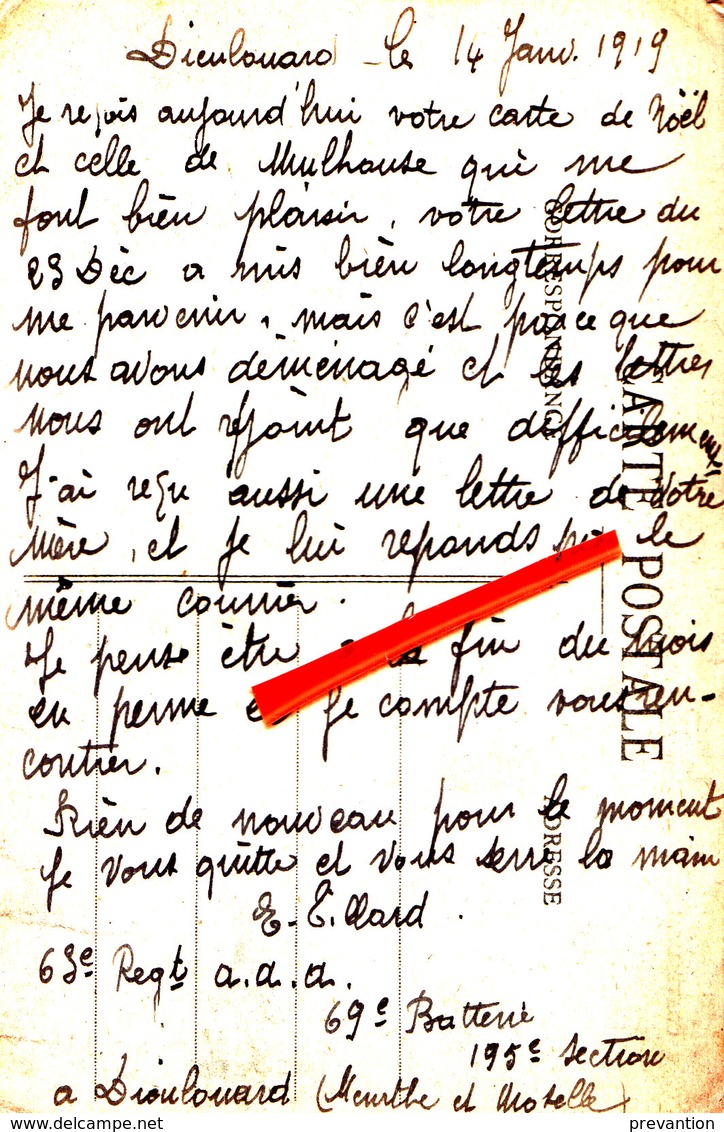 Dieulouard le 14 Janv. 1919
Je reçois aujourd'hui votre carte de Noël
et celle de Mulhouse qui me
font bien plaisir, votre lettre du
23 Déc a mis bien longtemps pour
me parvenir, mais c'est parce que
nous avons déménagé et les lettres
nous ont rejoint que difficilement
J'ai reçu aussi une lettre de Votre
Mère, et je lui reponds par le
même courrier.
Je pense être à la fin du mois
en perme et je compte vous ren-
contrer.
Rien de nouveau pour le moment
Je vous quitte et vous serre la main
E.
63e Regt a.d.a.
69e Batterie
195e Section
a Dieulouard (Meurthe et Moselle)
CARTE POSTALE
CORRESPONDANCE
ADRESSE
prevantion